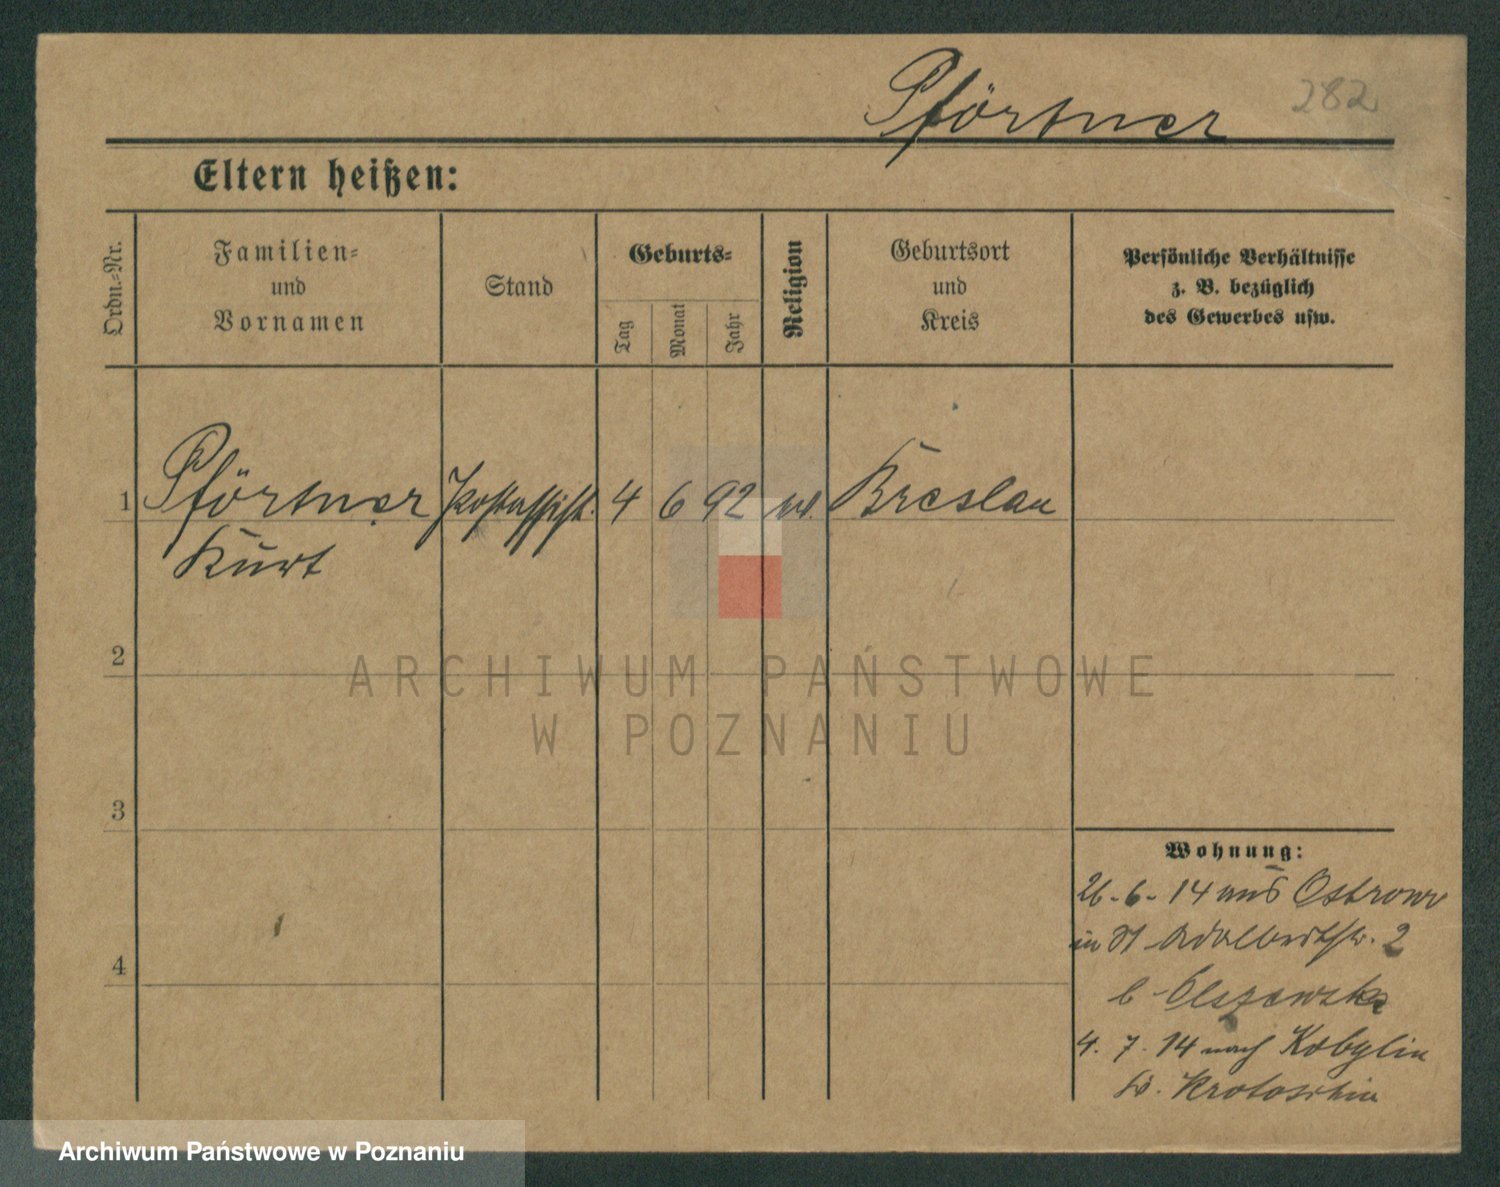 Pförtner 282
Eltern heißen:
Ordn.-Nr.
Familien-
und
Vornamen
Stand
Geburts-
Tag
Monat
Jahr
Religion
Geburtsort
und
Kreis
Persönliche Verhältnisse
z. B. bezüglich
des Gewerbes usw.
1 Pförtner Postassist. 4 6 92 Breslau
Kurt
2
ARCHIWUM PAŃSTWOWE
W POZNANIU
3
4
Wohnung:
26-6-14 aus Ostrowo
in St Adalbertstr. 2
b Olszewska
4. 7. 14 nach Kobylin
Krotoschin
Archiwum Państwowe w Poznaniu